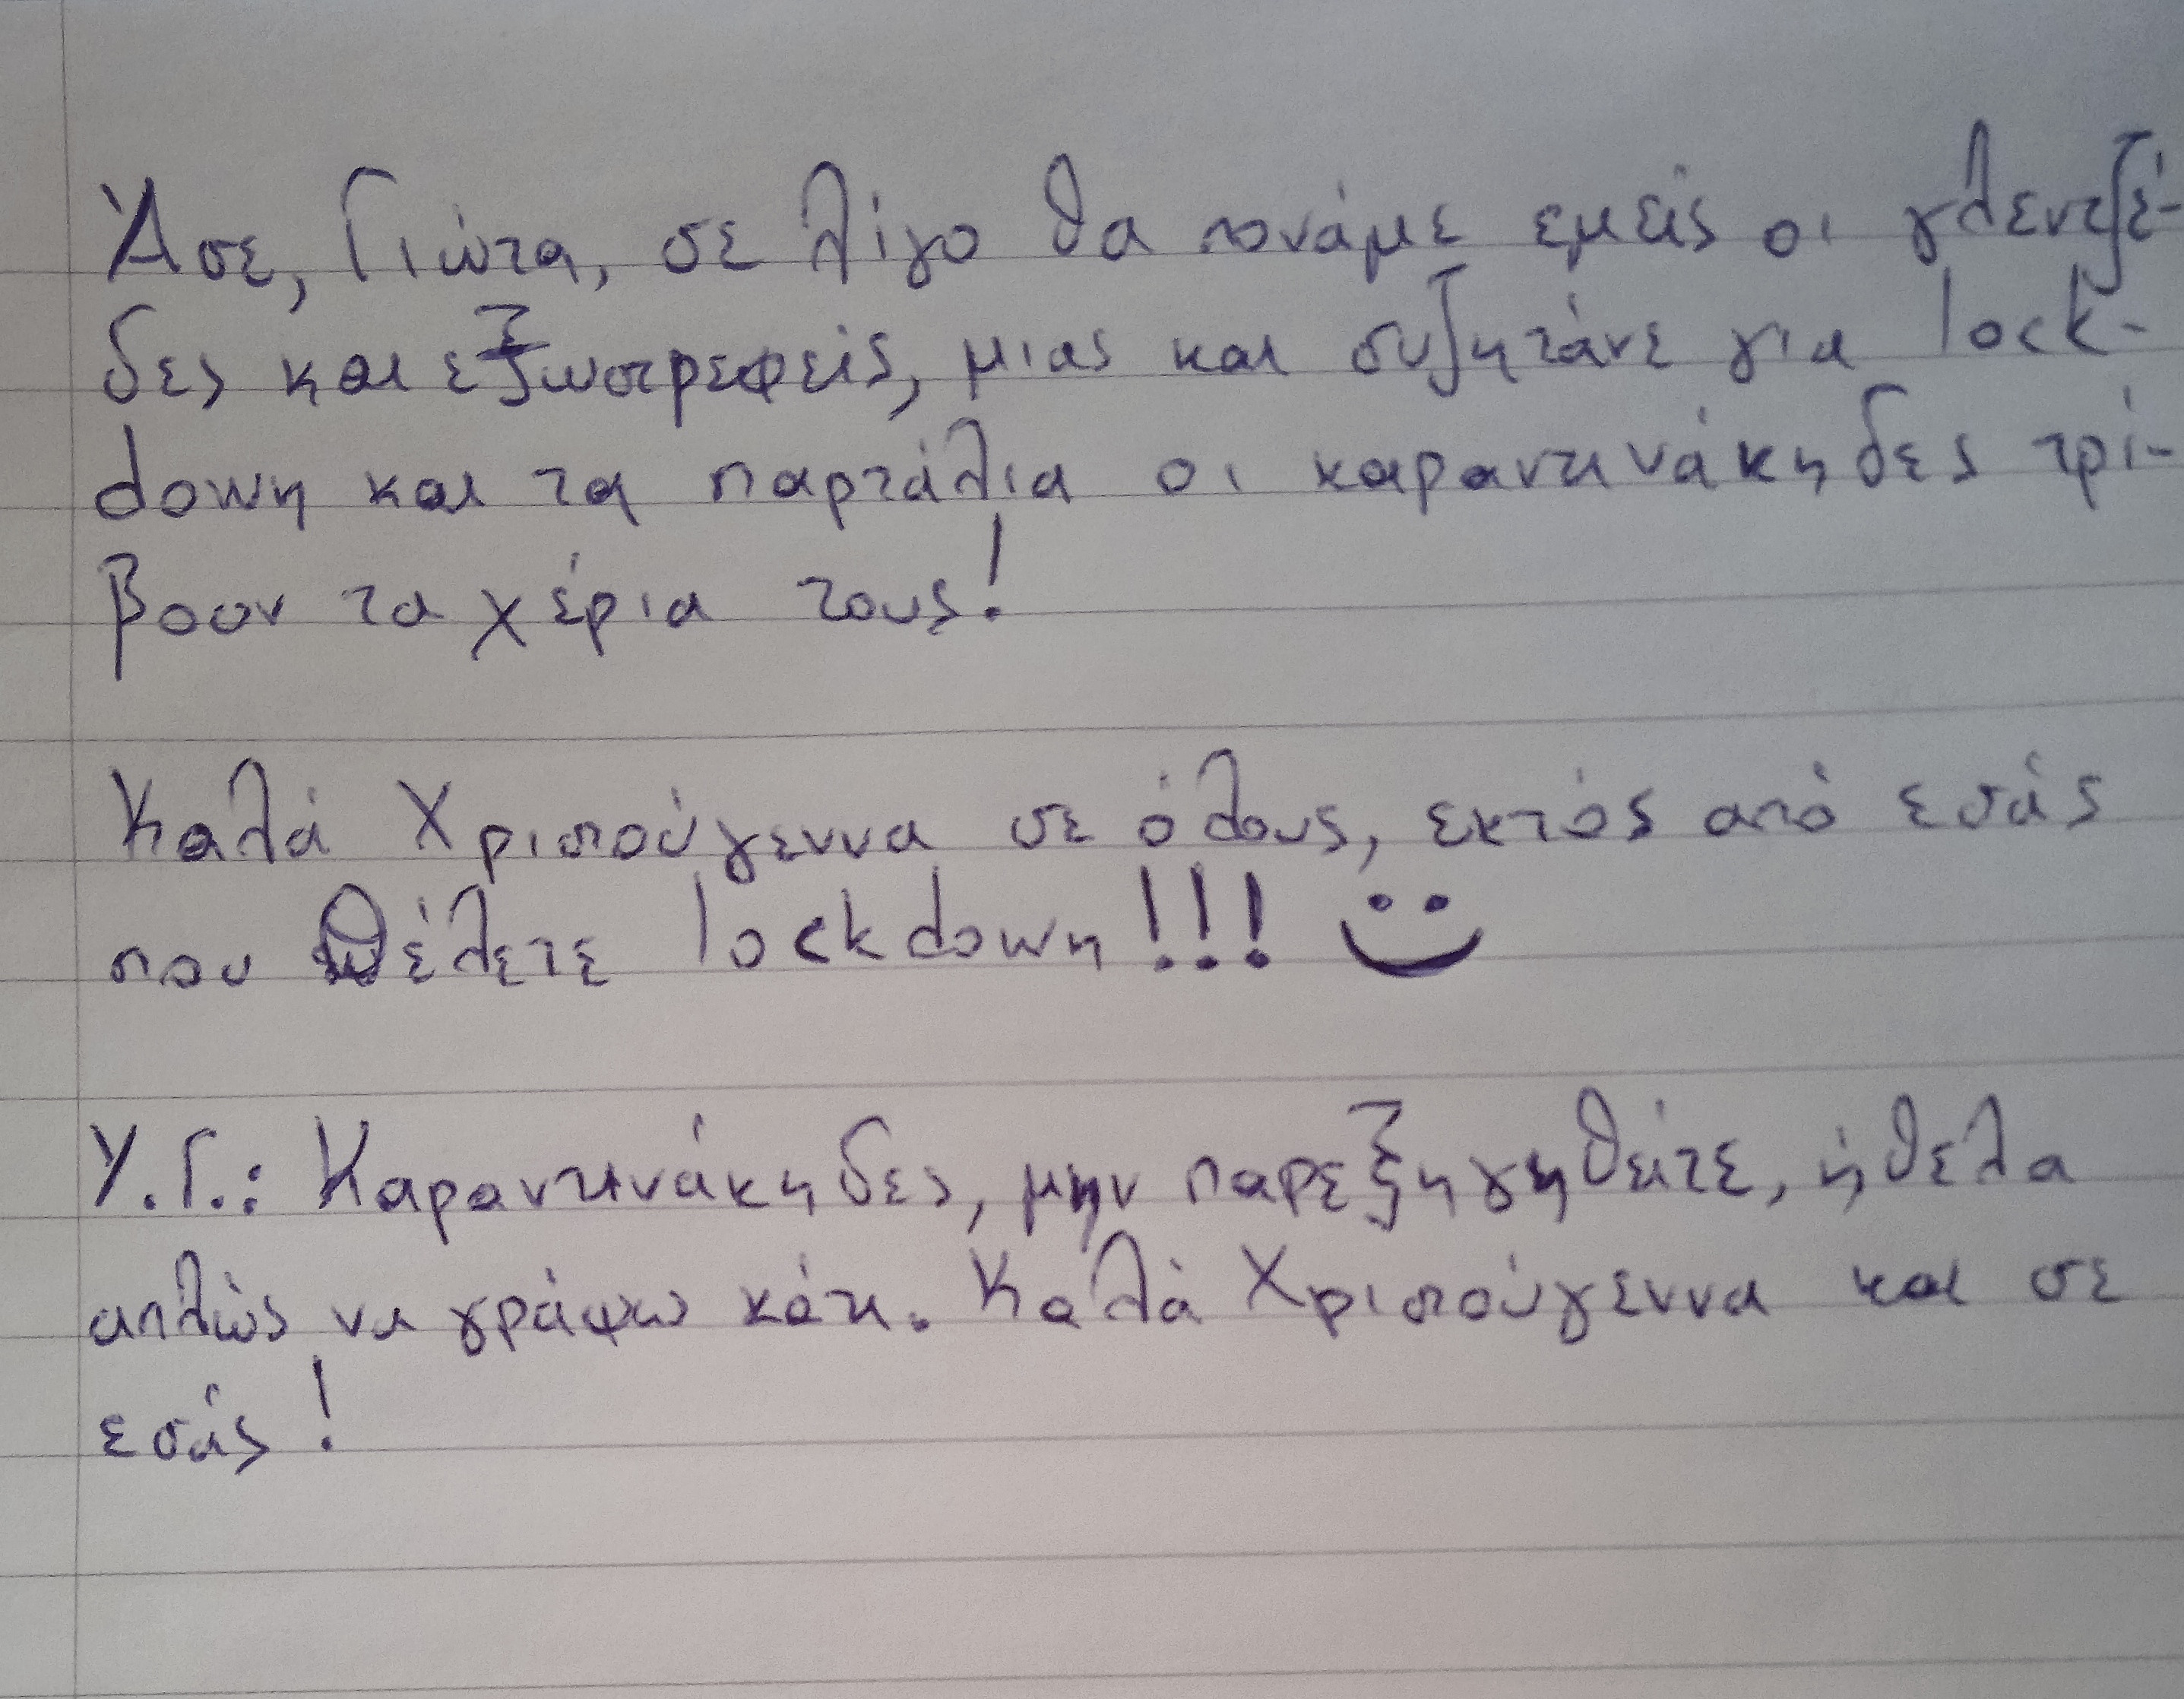 Άσε, Γιώτα, σε λίγο θα πονάμε εμείς οι γλεντζέ-
δες και εξωστρεφείς, μιας και συζητάνε για lock-
down και τα παρτάλια οι καραντινάκηδες τρί-
βουν τα χέρια τους!
Καλά Χριστούγεννα σε όλους, εκτός από εσάς
που θέλετε lockdown!!! :)
Υ.Γ.: Καραντινάκηδες, μην παρεξηγηθείτε, ήθελα
απλώς να γράψω κάτι. Καλά Χριστούγεννα και σε
εσάς!